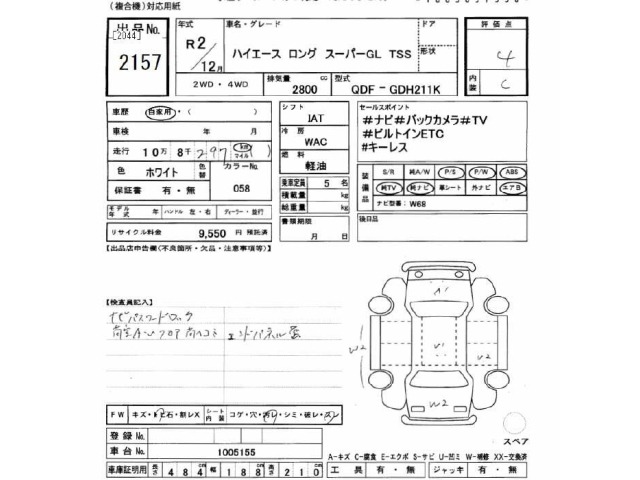 (複合機)対応用紙
出品No.
[2044]
2157
年式
R2/12月
車名・グレード
ハイエース ロング スーパーGL TSS
ドア
形状
2WD・4WD
排気量
2800 cc
型式
QDF - GDH211K
評価点
4
内装
C
車歴 自家用・( )
車検 年 月
走行 10万 8千 297 km マイル( )
色 ホワイト 色替
カラーNo.
058
保証書 有・無
モデル年式 年 ハンドル 左・右 ディーラー・並行
リサイクル料金 9,550 円 預託済
シフト
IAT
冷房
WAC
燃料
軽油
乗車定員 5 名
積載量 kg
総重量 kg
書類期限
月 日
セールスポイント
#ナビ#バックカメラ#TV
#ビルトインETC
#キーレス
装備品
S/R 純A/W P/S P/W ABS
純TV 純ナビ 革シート 外ナビ エアB
ナビ型番: W68
後日品
【出品店申告欄(不良箇所・欠品・注意事項等)】
【検査員記入】
ナビパスワードロック
エンドパネル
A1
W2
W2
V1
W2
FW キズ・飛石・割レX シート内装 コゲ・穴・汚レ・シミ・破レ・スレ
登録No.
車台No. 1005155
車庫証明用 長さ 484 幅 188 高さ 210
スペア
A-キズ C-腐食 E-エクボ S-サビ U-凹ミ W-補修 XX-交換済
工具 有・無 ジャッキ 有・無